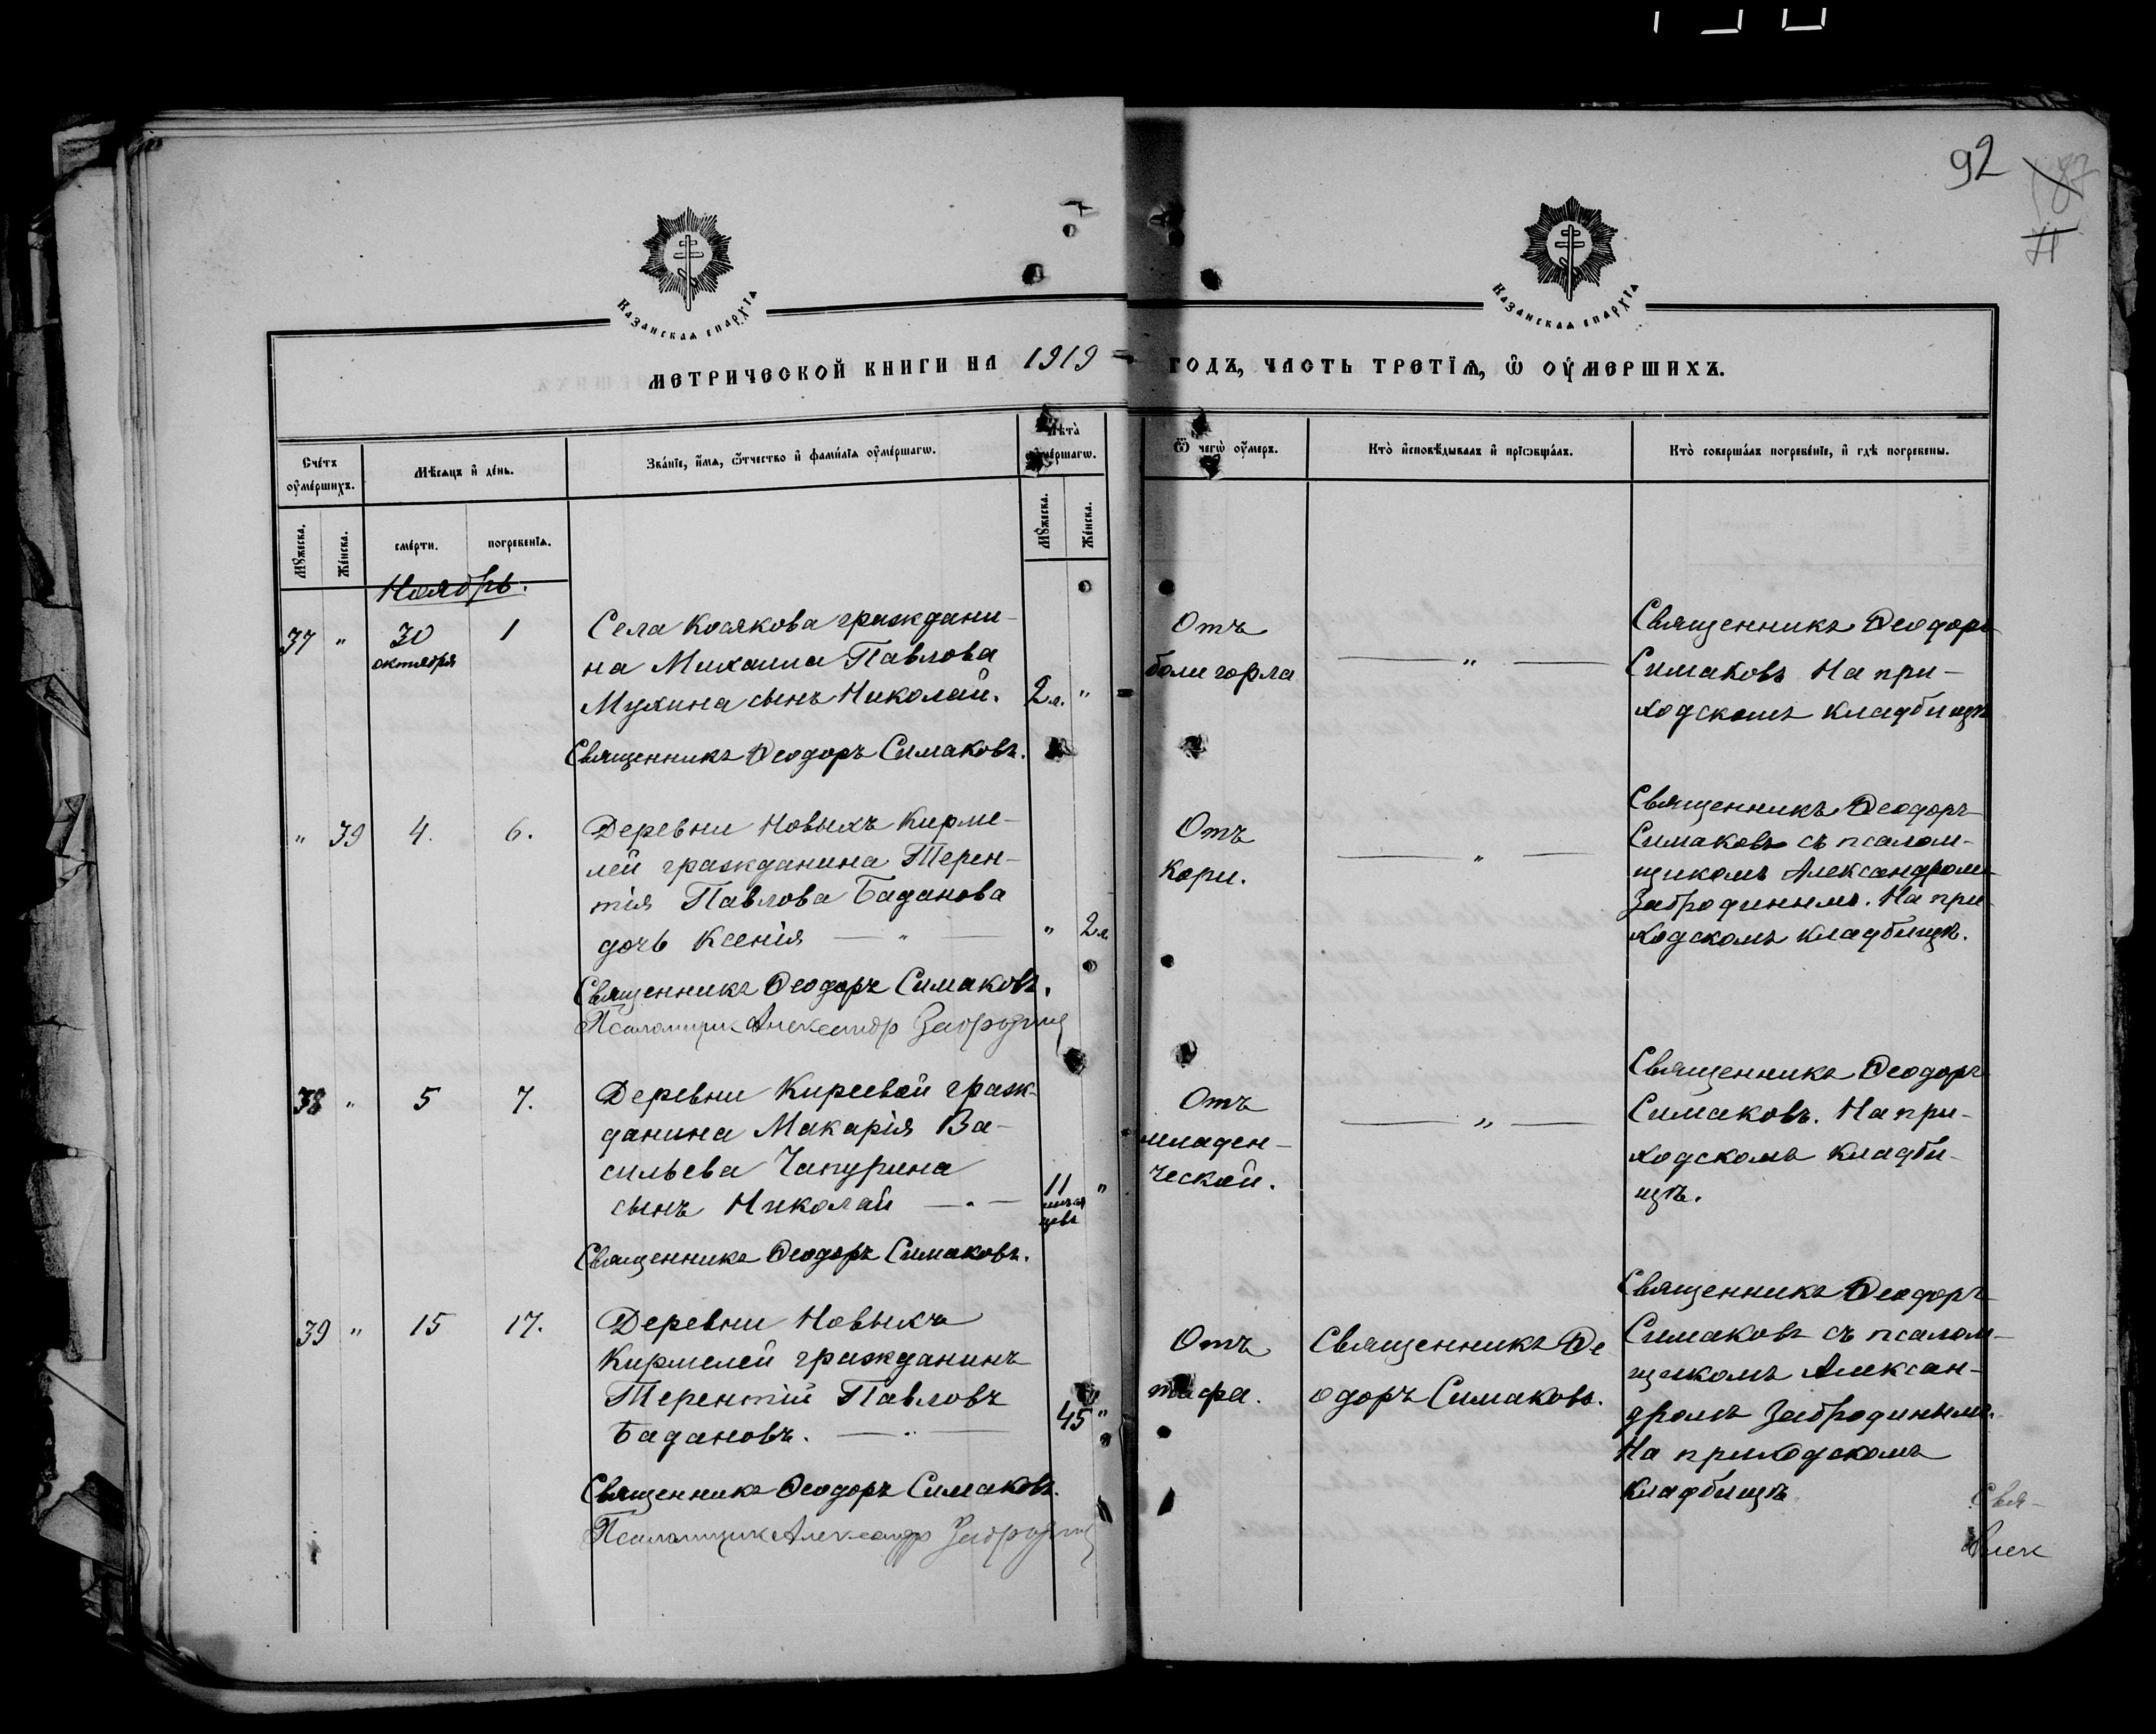 92
Казанская епархїѧ
Казанская епархїѧ
МЕТРИЧЕСКОЙ КНИГИ НА 1919 ГОДЪ, ЧАСТЬ ТРЕТЇѦ, Ѡ ОУМЕРШИХЪ.
Счетъ оумершихъ.
Мѣсяцъ и день.
Званїе, имѧ, ѿчество и фамилїа оумершагѡ.
Лѣта оумершагѡ.
Ѿ чегѡ оумеръ.
Кто исповѣдывалъ и прїѡбщалъ.
Кто совершалъ погребенїе, и гдѣ погребены.
Мꙋжеска.
Женска.
смерти.
погребенїѧ.
Мꙋжеска.
Женска.
Ноябрь.
37 " 30 октября 1
Села Косякова граждани-
на Михаила Павлова
Мухина сынъ Николай. 2 л. "
Священникъ Ѳеодоръ Симаковъ.
Отъ
боли горла
— " —
Священникъ Ѳеодоръ
Симаковъ На при-
ходскомъ кладбищѣ
" 39 4. 6.
Деревни Новыхъ Кирме-
лей гражданина Терен-
тія Павлова Баданова
дочь Ксенія — " — " 2 л.
Священникъ Ѳеодоръ Симаковъ.
Псаломщик Александр Забродин
Отъ
кори.
— " —
Священникъ Ѳеодоръ
Симаковъ съ псалом-
щикомъ Александромъ
Забродинымъ. На при
ходскомъ кладбищѣ.
38 " 5 7.
Деревни Киреевой граж-
данина Макарія Ва-
сильева Чапурина
сынъ Николай — " — 11 мѣся цевъ "
Священникъ Ѳеодоръ Симаковъ.
Отъ
младен-
ческой.
— " —
Священникъ Ѳеодоръ
Симаковъ. На при-
ходскомъ кладби-
щѣ.
39 " 15 17.
Деревни Новыхъ
Кирмелей гражданинъ
Терентій Павловъ
Бадановъ. — " — 45 "
Священникъ Ѳеодоръ Симаковъ.
Псаломщик Александр Забродин
Отъ
тифа.
Священникъ Ѳе
одоръ Симаковъ.
Священникъ Ѳеодоръ
Симаковъ съ псалом-
щикомъ Алексан-
дромъ Забродинымъ.
На приходскомъ
кладбищѣ
Свя-